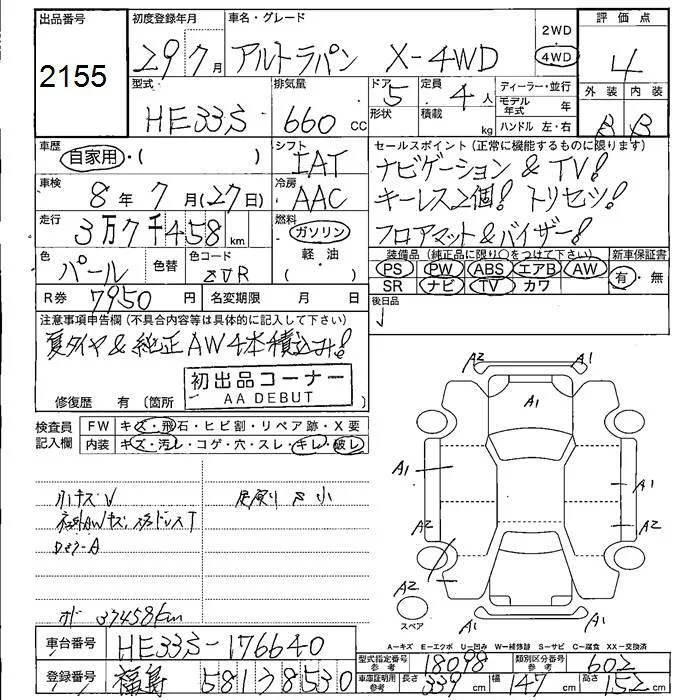 出品番号
2155
初度登録年月
29 7月
車名・グレード
アルトラパン X-4WD
2WD
4WD
評価点
4
型式
HE33S
排気量
660 CC
ドア 5
形状
定員 4 人
積載 kg
ディーラー・並行
モデル年式 年
ハンドル 左・右
外装 内装
B B
車歴
自家用・( )
シフト
IAT
セールスポイント(正常に機能するものに限ります)
ナビゲーション & TV!
キーレス2個! トリセツ!
フロアマット&バイザー!
車検
8年 7月(27日)
冷房
AAC
走行
3万7千458km
燃料
ガソリン
軽・油
( )
色
パール
色替
色コード
ZVR
装備品(純正品に限り○をつけて下さい)
PS PW ABS エアB AW
SR ナビ TV カワ
新車保証書
有・無
R券 7950円
名変期限 月 日
後日品
注意事項申告欄(不具合内容等は具体的に記入して下さい)
夏タイヤ&純正AW4本積込み!
初出品コーナー
AA DEBUT
修復歴 有(箇所
検査員記入欄
FW キズ・飛石・ヒビ割・リペア跡・X要
内装 キズ・汚レ・コゲ・穴・スレ・キレ・破レ
37458km
車台番号 HE33S-176640
登録番号 福島 581 8530
A2 A1
A1
A1 A1
A2 A2
A2
A1
スペア
A-キズ E-エクボ U-凹み W-補修跡 S-サビ C-腐食 XX-交換済
型式指定番号参考 18098
類別区分番号参考 602
車庫証明用参考 長さ 339cm 幅 147cm 高さ 152cm